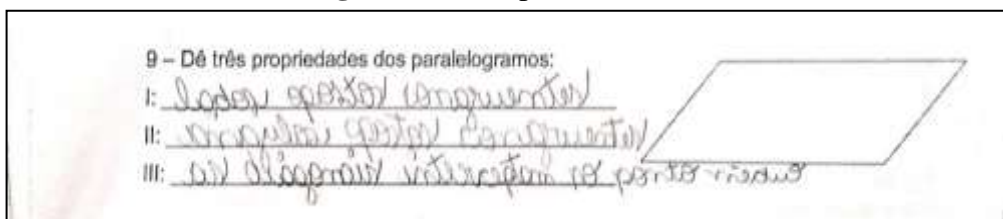 9 – Dê três propriedades dos paralelogramos:
I: lados opostos congruentes
II: ângulos opostos congruentes
III: as diagonais interceptam no ponto médio